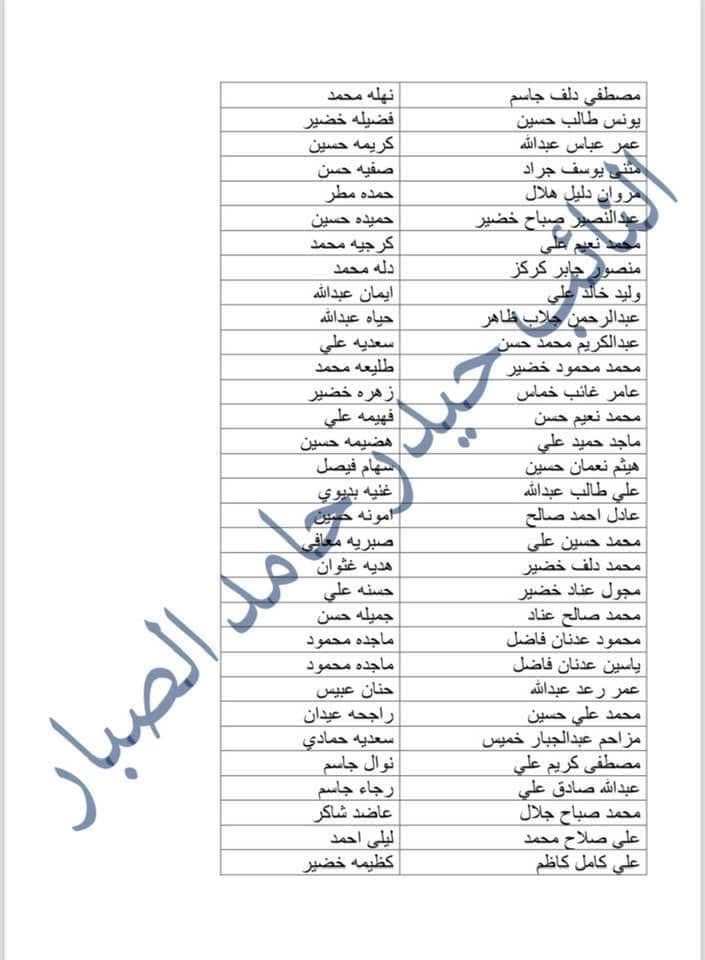 مصطفي دلف جاسم نهله محمد
يونس طالب حسين فضيله خضير
عمر عباس عبدالله كريمه حسين
مثنى يوسف جراد صفيه حسن
مروان دليل هلال حمده مطر
عبدالنصير صباح خضير حميده حسين
محمد نعيم علي كرجيه محمد
منصور جابر كركز دله محمد
وليد خالد علي ايمان عبدالله
عبدالرحمن جلاب ظاهر حياه عبدالله
عبدالكريم محمد حسن سعديه علي
محمد محمود خضير طليعه محمد
عامر غائب خماس زهره خضير
محمد نعيم حسن فهيمه علي
ماجد حميد علي هضيمه حسين
هيثم نعمان حسين سهام فيصل
علي طالب عبدالله غنيه بديوي
عادل احمد صالح امونه حسين
محمد حسين علي صبريه معافي
محمد دلف خضير هديه غثوان
مجول عناد خضير حسنه علي
محمد صالح عناد جميله حسن
محمود عدنان فاضل ماجده محمود
ياسين عدنان فاضل ماجده محمود
عمر رعد عبدالله حنان عبيس
محمد علي حسين راجحه عيدان
مزاحم عبدالجبار خميس سعديه حمادي
مصطفى كريم علي نوال جاسم
عبدالله صادق علي رجاء جاسم
محمد صباح جلال عاضد شاكر
علي صلاح محمد ليلى احمد
علي كامل كاظم كظيمه خضير
النائب حيدر حامد الصبار